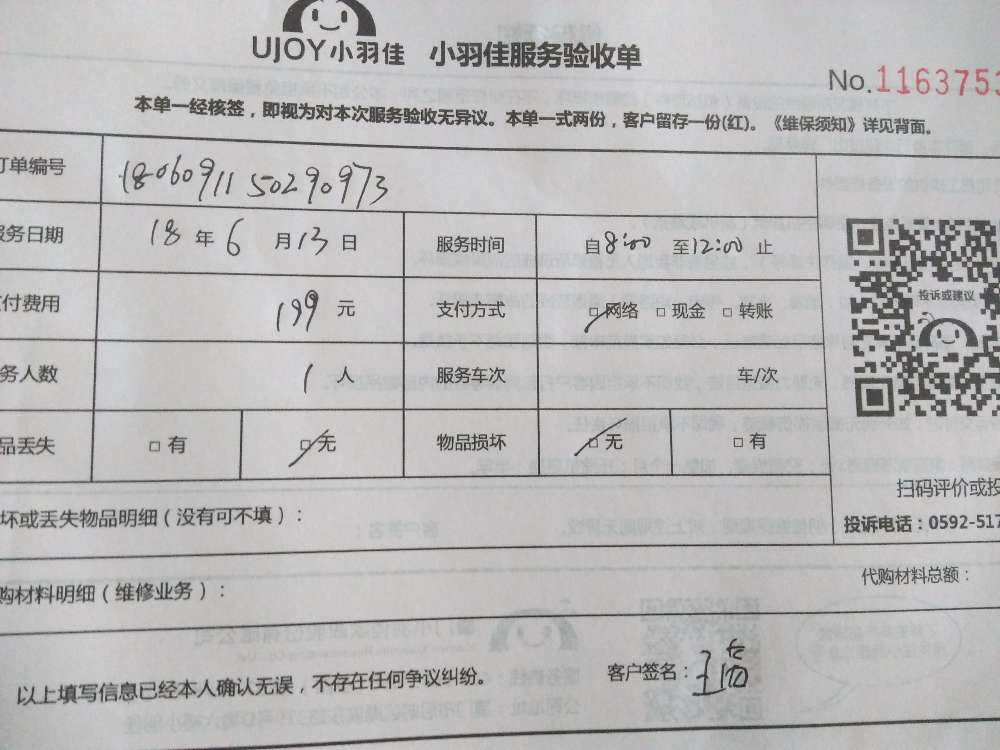 UJOY小羽佳 小羽佳服务验收单
No.1163753
本单一经核签，即视为对本次服务验收无异议。本单一式两份，客户留存一份(红)。《维保须知》详见背面。
订单编号 18060911 50290973
服务日期 18 年 6 月 13 日 服务时间 自8:00 至12:00 止
支付费用 199 元 支付方式 □网络 □现金 □转账
服务人数 1 人 服务车次 车/次
物品丢失 □有 □无 物品损坏 □无 □有
投诉或建议
扫码评价或投
投诉电话：0592-517
坏或丢失物品明细（没有可不填）：
购材料明细（维修业务）：
代购材料总额：
以上填写信息已经本人确认无误，不存在任何争议纠纷。
客户签名：王